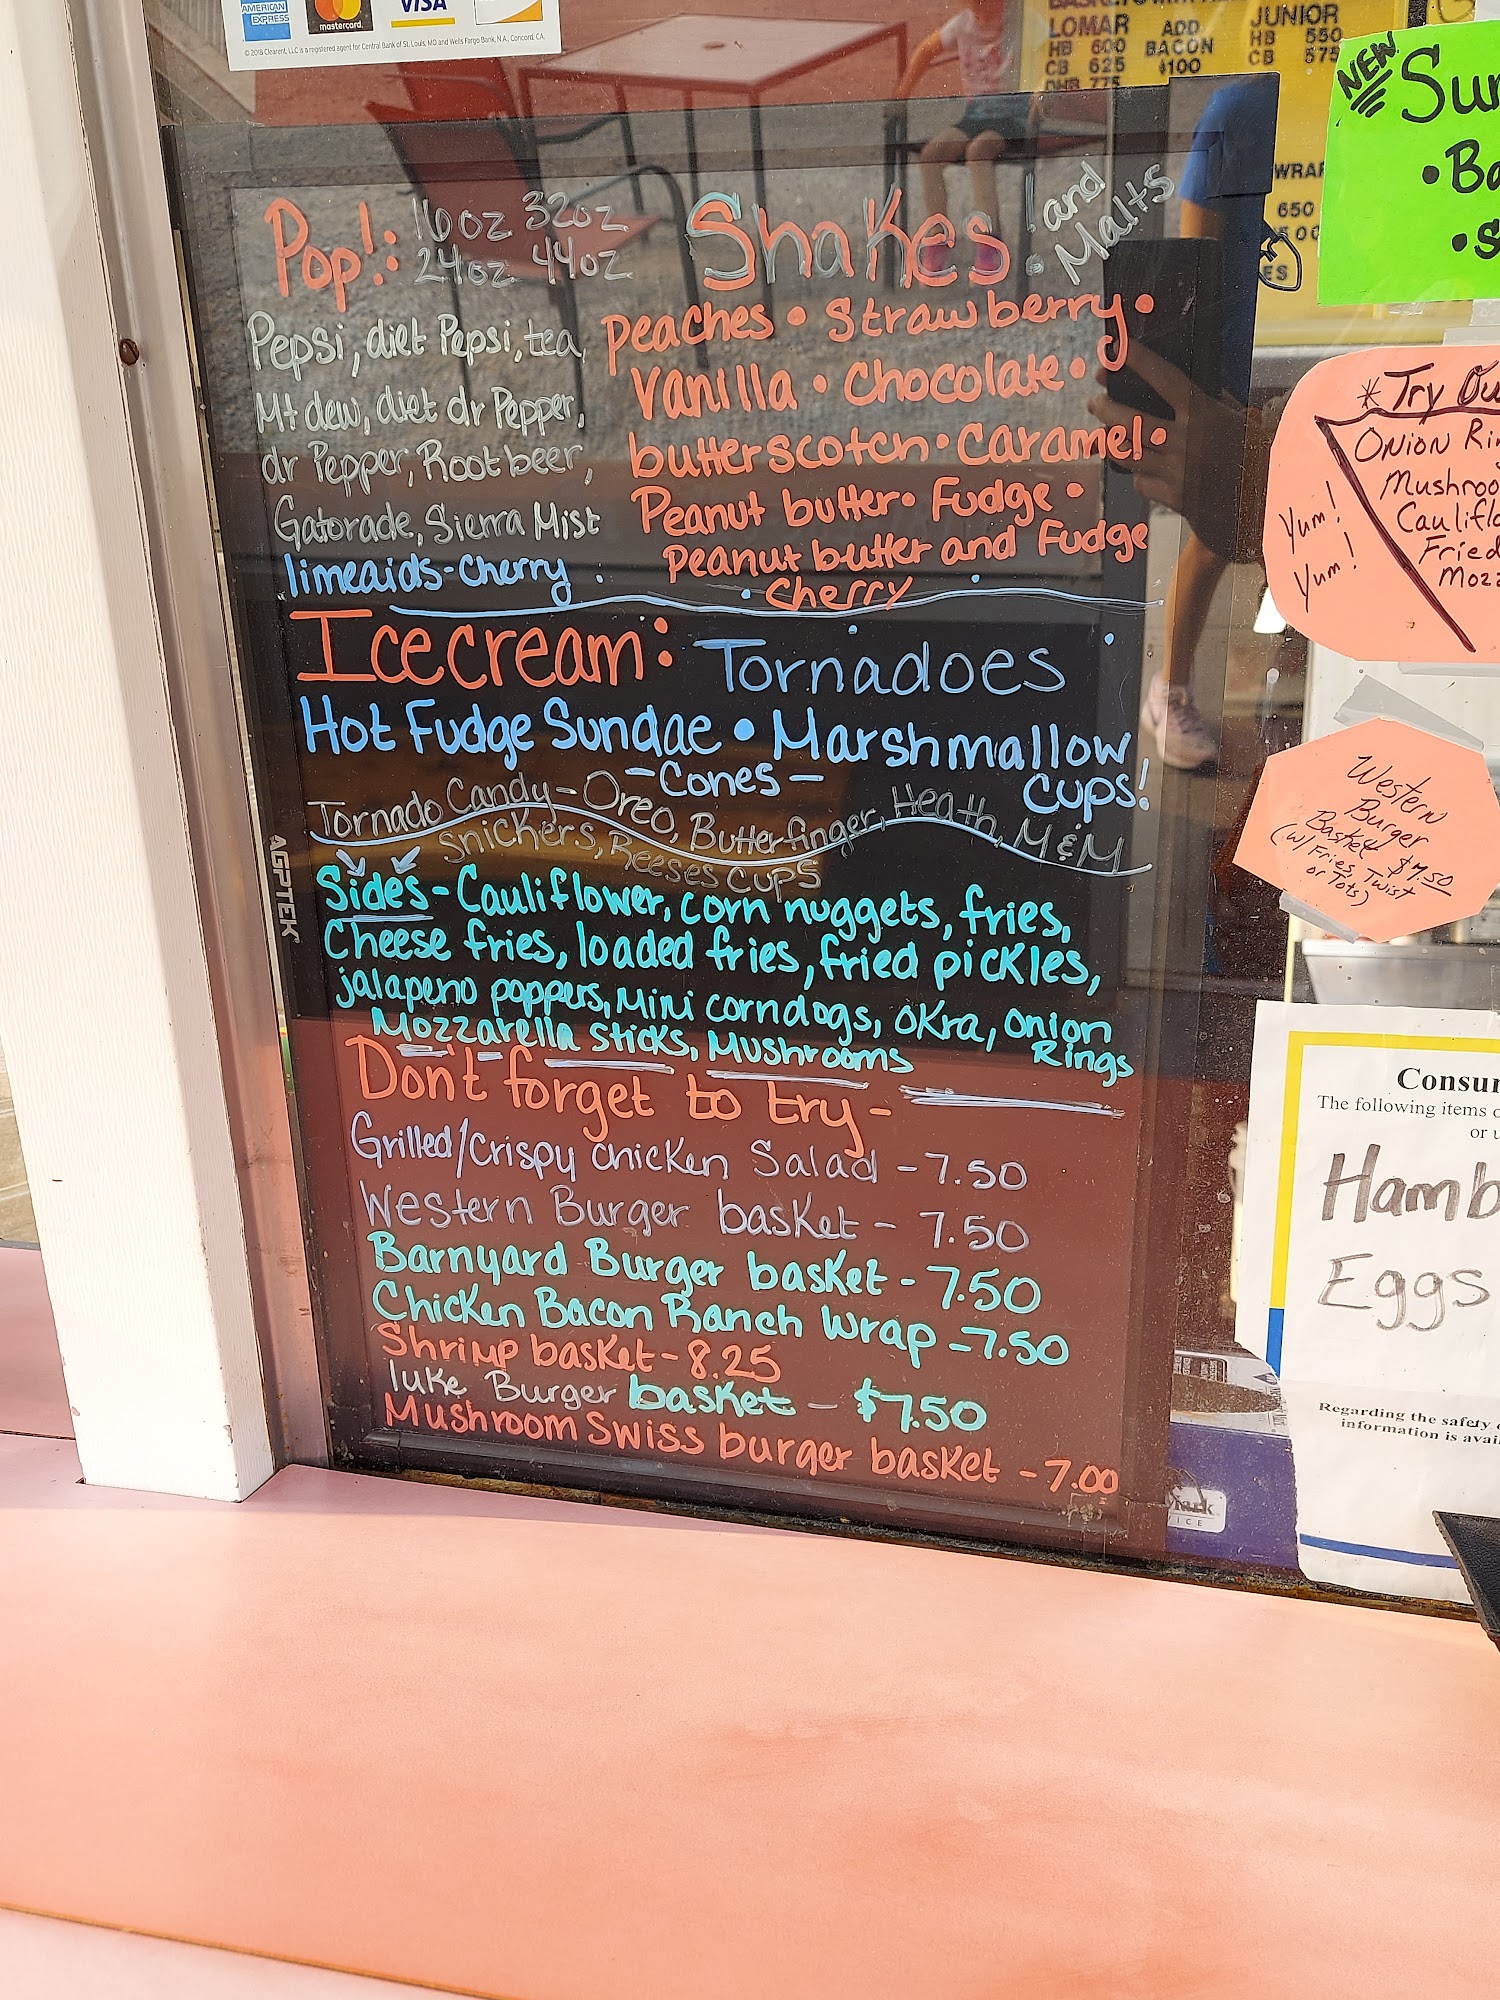 AMERICAN EXPRESS
mastercard.
VISA
©2018 Clearent, LLC is a registered agent for Central Bank of St. Louis, MO and Wells Fargo Bank, N.A., Concord, CA.
LOMAR
HB 600
CB 625
DHB 775
ADD
BACON
$100
JUNIOR
HB 550
CB 575
WRAP
650
NEW
Pop!: 16oz 32oz
24oz 44oz
Pepsi, diet Pepsi, tea,
Mt dew, diet dr Pepper,
dr Pepper, Root beer,
Gatorade, Sierra Mist
limeaids-Cherry
Shakes! and Malts
Peaches • Strawberry •
Vanilla • Chocolate •
butterscotch • Caramel •
Peanut butter • Fudge •
Peanut butter and Fudge
• Cherry
Icecream: Tornadoes
Hot Fudge Sundae • Marshmallow
-Cones- Cups!
Tornado Candy - Oreo, Butterfinger, Heath, M&M
Snickers, Reeses cups
AGPTEK
Sides - Cauliflower, corn nuggets, fries,
Cheese fries, loaded fries, fried pickles,
jalapeno poppers, Mini corndogs, okra, onion
Mozzarella sticks, Mushrooms Rings
Don't forget to try -
Grilled/Crispy chicken Salad - 7.50
Western Burger basket - 7.50
Barnyard Burger basket - 7.50
Chicken Bacon Ranch Wrap - 7.50
Shrimp basket - 8.25
luke Burger basket - $7.50
Mushroom Swiss burger basket - 7.00
*Try Ou
Onion Rin
Mushroo
Cauliflo
Fried
Mozz
Yum!
Yum!
Western
Burger
Basket $7.50
(w/Fries, Twist
or Tots)
Consu
The following items o
or u
Hamb
Eggs
Regarding the safety o
information is avai